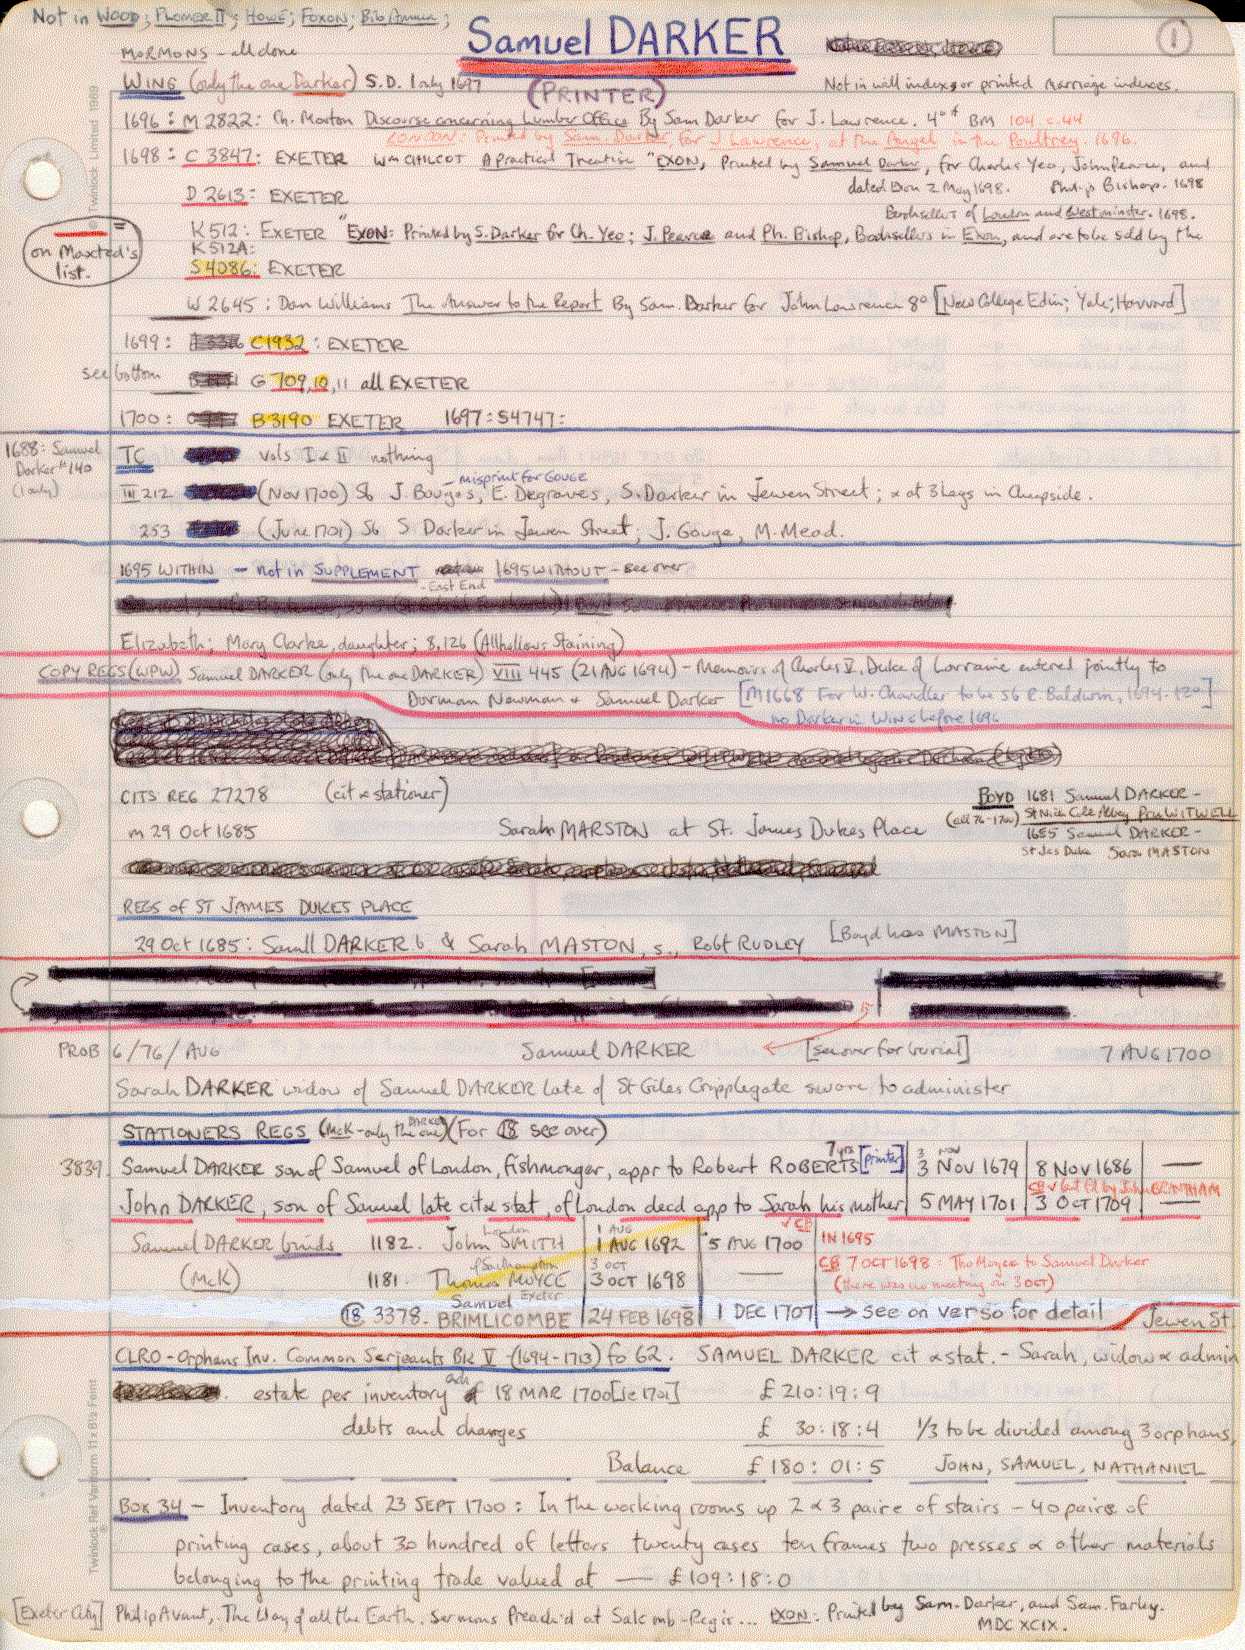 Not in WOOD; PLOMER II; HOWE; FOXON; Bib Annex;
Samuel DARKER
1
MORMONS - all done
WING (only the one Darker) S.D. 1 only 1697
(PRINTER)
Not in will indexes or printed marriage indexes.
1696: M2822: Ch. Morton Discourse concerning Lumber Office By Sam Darker for J. Lawrence. 4° BM 104 c.44
LONDON: Printed by Sam. Darker, for J Lawrence, at the Angel in the Poultrey. 1696.
1698: C 3847: EXETER Wm CHILCOT A Practical Treatise "EXON, Printed by Samuel Darker, for Charles Yeo, John Pearce, and
dated Exon 2 May 1698. Philip Bishop. 1698
D 2613: EXETER
Booksellers of London and Westminster. 1698.
K512: EXETER "EXON: Printed by S. Darker for Ch. Yeo; J. Pearce and Ph. Bishop, Booksellers in Exon, and are to be sold by the
K512A:
on Maxted's list.
S4086: EXETER
W 2645: Dan Williams The Answer to the Report By Sam. Darker for John Lawrence 8° [New College Edin; Yale; Harvard]
1699: C1932: EXETER
see bottom G 709,10,11 all EXETER
1700: B3190 EXETER 1697: S4747:
1688: Samuel Darker #140 (1 only)
TC vols I & II nothing
misprint for GOUGE
III 212 (Nov 1700) Sb J. Bouges, E. Degraves, S. Darker in Jewen Street; & at 3 Legs in Cheapside.
253 (June 1701) Sb S Darker in Jewen Street; J. Gouge, M. Mead.
1695 WITHIN - not in SUPPLEMENT 1695 WITHOUT - see over
- East End
Elizabeth; Mary Clarke, daughter; 8.126 (Allhallows Staining)
COPY REGS (WPW) Samuel DARKER (only the one DARKER) VIII 445 (21 AUG 1694) - Memoirs of Charles V, Duke of Lorraine entered jointly to
Dorman Newman & Samuel Darker [M1668 For W. Chandler to be sb R. Baldwin, 1694. 12°]
no Darker in WING before 1696
CITS REG 27278 (cit & stationer)
BOYD 1681 Samuel DARKER -
(all 76-1700) St Nich Cole Abbey Pru WITWELL
m 29 Oct 1685 Sarah MARSTON at St. James Dukes Place
1685 Samuel DARKER -
St Jas Duke Sara MASTON
REGS of ST JAMES DUKES PLACE
29 Oct 1685: Samll DARKER b. & Sarah MASTON, s., Robt RUDLEY [Boyd has MASTON]
PROB 6/76/AUG Samuel DARKER [see over for burial] 7 AUG 1700
Sarah DARKER widow of Samuel DARKER late of St Giles Cripplegate swore to administer
STATIONERS REGS (McK - only the one DARKER) (For 18 see over)
3839. Samuel DARKER son of Samuel of London, fishmonger, appr to Robert ROBERTS 7 yrs [printer] 3 NOV 3 NOV 1679 8 NOV 1686 —
John DARKER, son of Samuel late cit & stat, of London decd app to Sarah his mother 5 MAY 1701 3 OCT 1709 —
Samuel DARKER binds 1182. John SMITH London 1 AUG 1 AUG 1692 5 AUG 1700 ✓ CB IN 1695
(McK) 1181. Thomas MOYCE of Southampton 3 OCT 3 OCT 1698 — CB 7 OCT 1698: Tho Moyce to Samuel Darker
(there was no meeting on 3 OCT)
18 3378. Samuel BRIMLICOMBE Exeter 24 FEB 1698 1 DEC 1707 → see on verso for detail Jewen St.
CLRO - Orphans Inv. Common Serjeants Bk V - (1694-1713) fo 62. SAMUEL DARKER cit & stat. - Sarah, widow & admin
estate per inventory 18 MAR 1700 [ie 1701] £210:19:9
debts and charges £ 30:18:4 1/3 to be divided among 3 orphans,
Balance £180:01:5 JOHN, SAMUEL, NATHANIEL
Box 34 - Inventory dated 23 SEPT 1700: In the working rooms up 2 & 3 paire of stairs - 40 paire of
printing cases, about 30 hundred of letters twenty cases ten frames two presses & other materials
belonging to the printing trade valued at — £109:18:0
[Exeter City] Philip Avant, The Way of all the Earth. Sermons Preach'd at Salcomb-Regis... EXON: Printed by Sam. Darker, and Sam. Farley.
MDCXCIX.
© Twinlock Limited 1969
Twinlock Ref Variform 11 x 8½ Feint